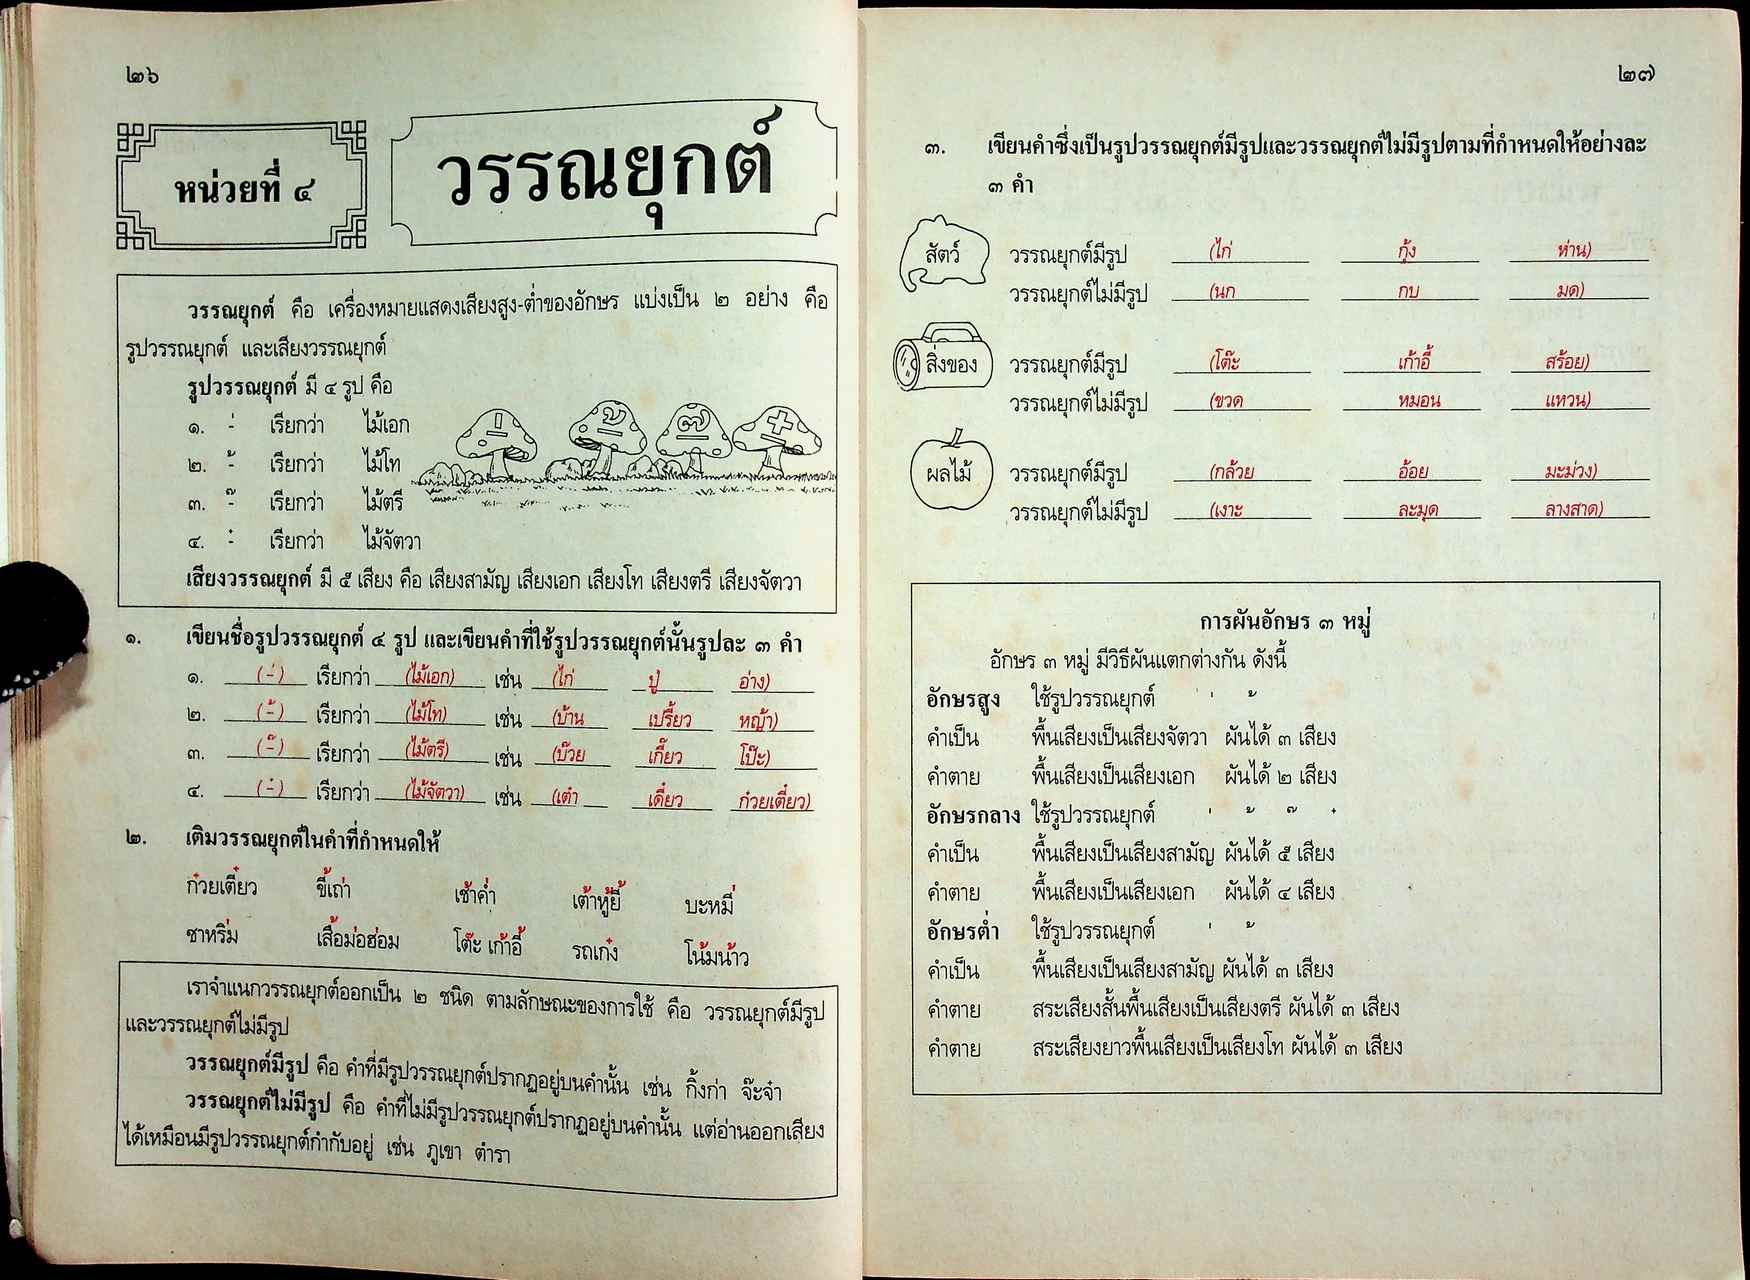 ๒๖
หน่วยที่ ๔
วรรณยุกต์
วรรณยุกต์ คือ เครื่องหมายแสดงเสียงสูง-ต่ำของอักษร แบ่งเป็น ๒ อย่าง คือ
รูปวรรณยุกต์ และเสียงวรรณยุกต์
รูปวรรณยุกต์ มี ๔ รูป คือ
๑. -่ เรียกว่า ไม้เอก
๒. -้ เรียกว่า ไม้โท
๓. -๊ เรียกว่า ไม้ตรี
๔. -๋ เรียกว่า ไม้จัตวา
เสียงวรรณยุกต์ มี ๕ เสียง คือ เสียงสามัญ เสียงเอก เสียงโท เสียงตรี เสียงจัตวา
๑. เขียนชื่อรูปวรรณยุกต์ ๔ รูป และเขียนคำที่ใช้รูปวรรณยุกต์นั้นรูปละ ๓ คำ
๑. (-่) เรียกว่า (ไม้เอก) เช่น (ไก่ ปู่ อ่าง)
๒. (-้) เรียกว่า (ไม้โท) เช่น (บ้าน เปรี้ยว หญ้า)
๓. (-๊) เรียกว่า (ไม้ตรี) เช่น (บ๊วย เกี๊ยว โป๊ะ)
๔. (-๋) เรียกว่า (ไม้จัตวา) เช่น (เต๋า เดี๋ยว ก๋วยเตี๋ยว)
๒. เติมวรรณยุกต์ในคำที่กำหนดให้
ก๋วยเตี๋ยว ขี้เถ่า เช้าค่ำ เต้าหู้ยี้ บะหมี่
ซาหริ่ม เสื้อม่อฮ่อม โต๊ะ เก้าอี้ รถเก๋ง โน้มน้าว
เราจำแนกวรรณยุกต์ออกเป็น ๒ ชนิด ตามลักษณะของการใช้ คือ วรรณยุกต์มีรูป
และวรรณยุกต์ไม่มีรูป
วรรณยุกต์มีรูป คือ คำที่มีรูปวรรณยุกต์ปรากฏอยู่บนคำนั้น เช่น กิ้งก่า จ๊ะจ๋า
วรรณยุกต์ไม่มีรูป คือ คำที่ไม่มีรูปวรรณยุกต์ปรากฏอยู่บนคำนั้น แต่อ่านออกเสียง
ได้เหมือนมีรูปวรรณยุกต์กำกับอยู่ เช่น ภูเขา ตำรา
๒๗
๓. เขียนคำซึ่งเป็นรูปวรรณยุกต์มีรูปและวรรณยุกต์ไม่มีรูปตามที่กำหนดให้อย่างละ
๓ คำ
สัตว์ วรรณยุกต์มีรูป (ไก่ กุ้ง ห่าน)
วรรณยุกต์ไม่มีรูป (นก กบ มด)
สิ่งของ วรรณยุกต์มีรูป (โต๊ะ เก้าอี้ สร้อย)
วรรณยุกต์ไม่มีรูป (ขวด หมอน แหวน)
ผลไม้ วรรณยุกต์มีรูป (กล้วย อ้อย มะม่วง)
วรรณยุกต์ไม่มีรูป (เงาะ ละมุด ลางสาด)
การผันอักษร ๓ หมู่
อักษร ๓ หมู่ มีวิธีผันแตกต่างกัน ดังนี้
อักษรสูง ใช้รูปวรรณยุกต์ ่ ้
คำเป็น พื้นเสียงเป็นเสียงจัตวา ผันได้ ๓ เสียง
คำตาย พื้นเสียงเป็นเสียงเอก ผันได้ ๒ เสียง
อักษรกลาง ใช้รูปวรรณยุกต์ ่ ้ ๊ ๋
คำเป็น พื้นเสียงเป็นเสียงสามัญ ผันได้ ๕ เสียง
คำตาย พื้นเสียงเป็นเสียงเอก ผันได้ ๔ เสียง
อักษรต่ำ ใช้รูปวรรณยุกต์ ่ ้
คำเป็น พื้นเสียงเป็นเสียงสามัญ ผันได้ ๓ เสียง
คำตาย สระเสียงสั้นพื้นเสียงเป็นเสียงตรี ผันได้ ๓ เสียง
คำตาย สระเสียงยาวพื้นเสียงเป็นเสียงโท ผันได้ ๓ เสียง